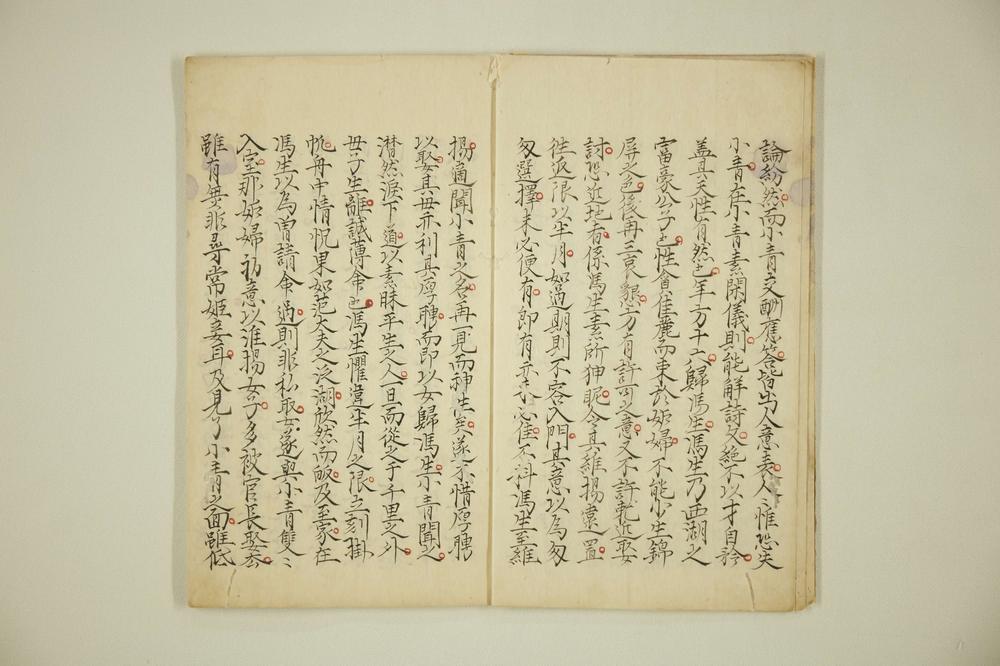 論紛然而小青交酬應答皆出人意表人惟恐失
小青在小青素閑儀則能解詩文絶不以才自矜
盖其天性有然也年方十六歸馮生馮生乃西湖之
富豪公子也性貪佳麗而束於妬婦不能少生錦
屏之色後再三哀懇方有許可之意又不許乾近娶
討恐近地者係馮生素所狎昵令其維揚棠置
徃返限以半月如過期則不容入門其意以為匆
匆選擇未必便有即有亦未必佳不料馮生至維
揚適聞小青之名再一見而神生矣遂不惜厚聘
以娶其毋亦利其厚聘而即以女歸馮生小青聞之
潜然淚下道以素昧平生之人一旦而從之于千里之外
母子生離誠薄命也馮生懼違半月之限立刻掛
帆舟中情悦果如范大夫之泛湖欣然而皈及至家在
馮生以為曽請命過則非私娶遂與小青雙〻
入室那妬婦初意以淮揚女子多被官長娶去
雖有無非尋常姬妾耳及見了小青之面雖低